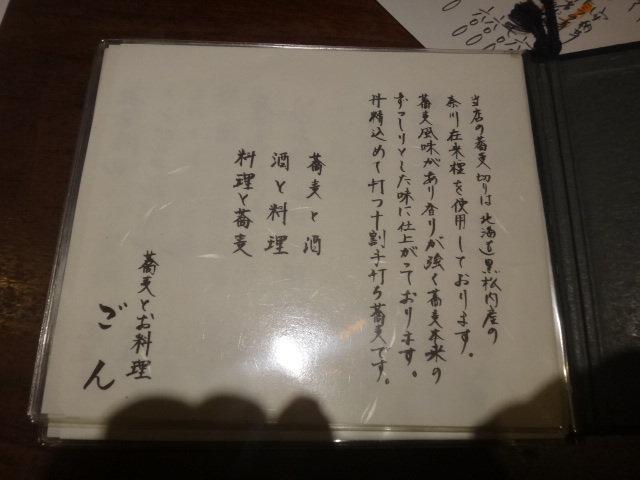 当店の蕎麦切りは北海道黒松内産の
奈川在来種を使用しております。
蕎麦風味があり香りが強く蕎麦本来の
ずっしりとした味に仕上がっております。
丹精込めて打つ十割手打ち蕎麦です。
蕎麦と酒
酒と料理
料理と蕎麦
蕎麦とお料理
ごん